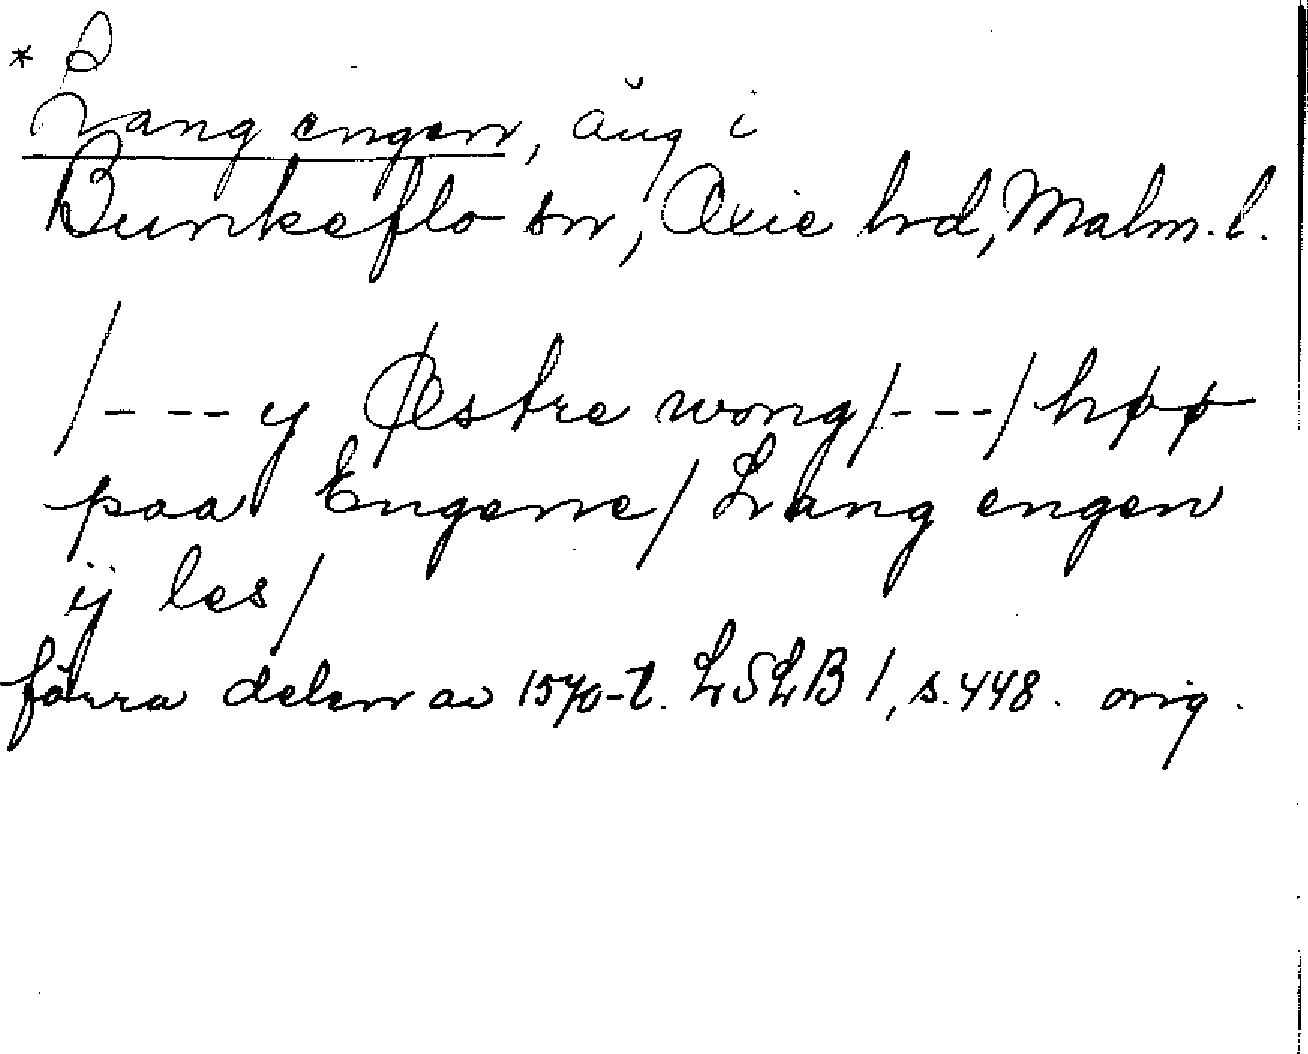 * Lang engen, äng i
Bunkeflo sn, Oxie hd, Malm. l.
/--- y Østre wong/---/høø
paa Engerne/ Lang engen
ij les/
förra delen av 1570-t. LSLB 1, s. 448. orig.